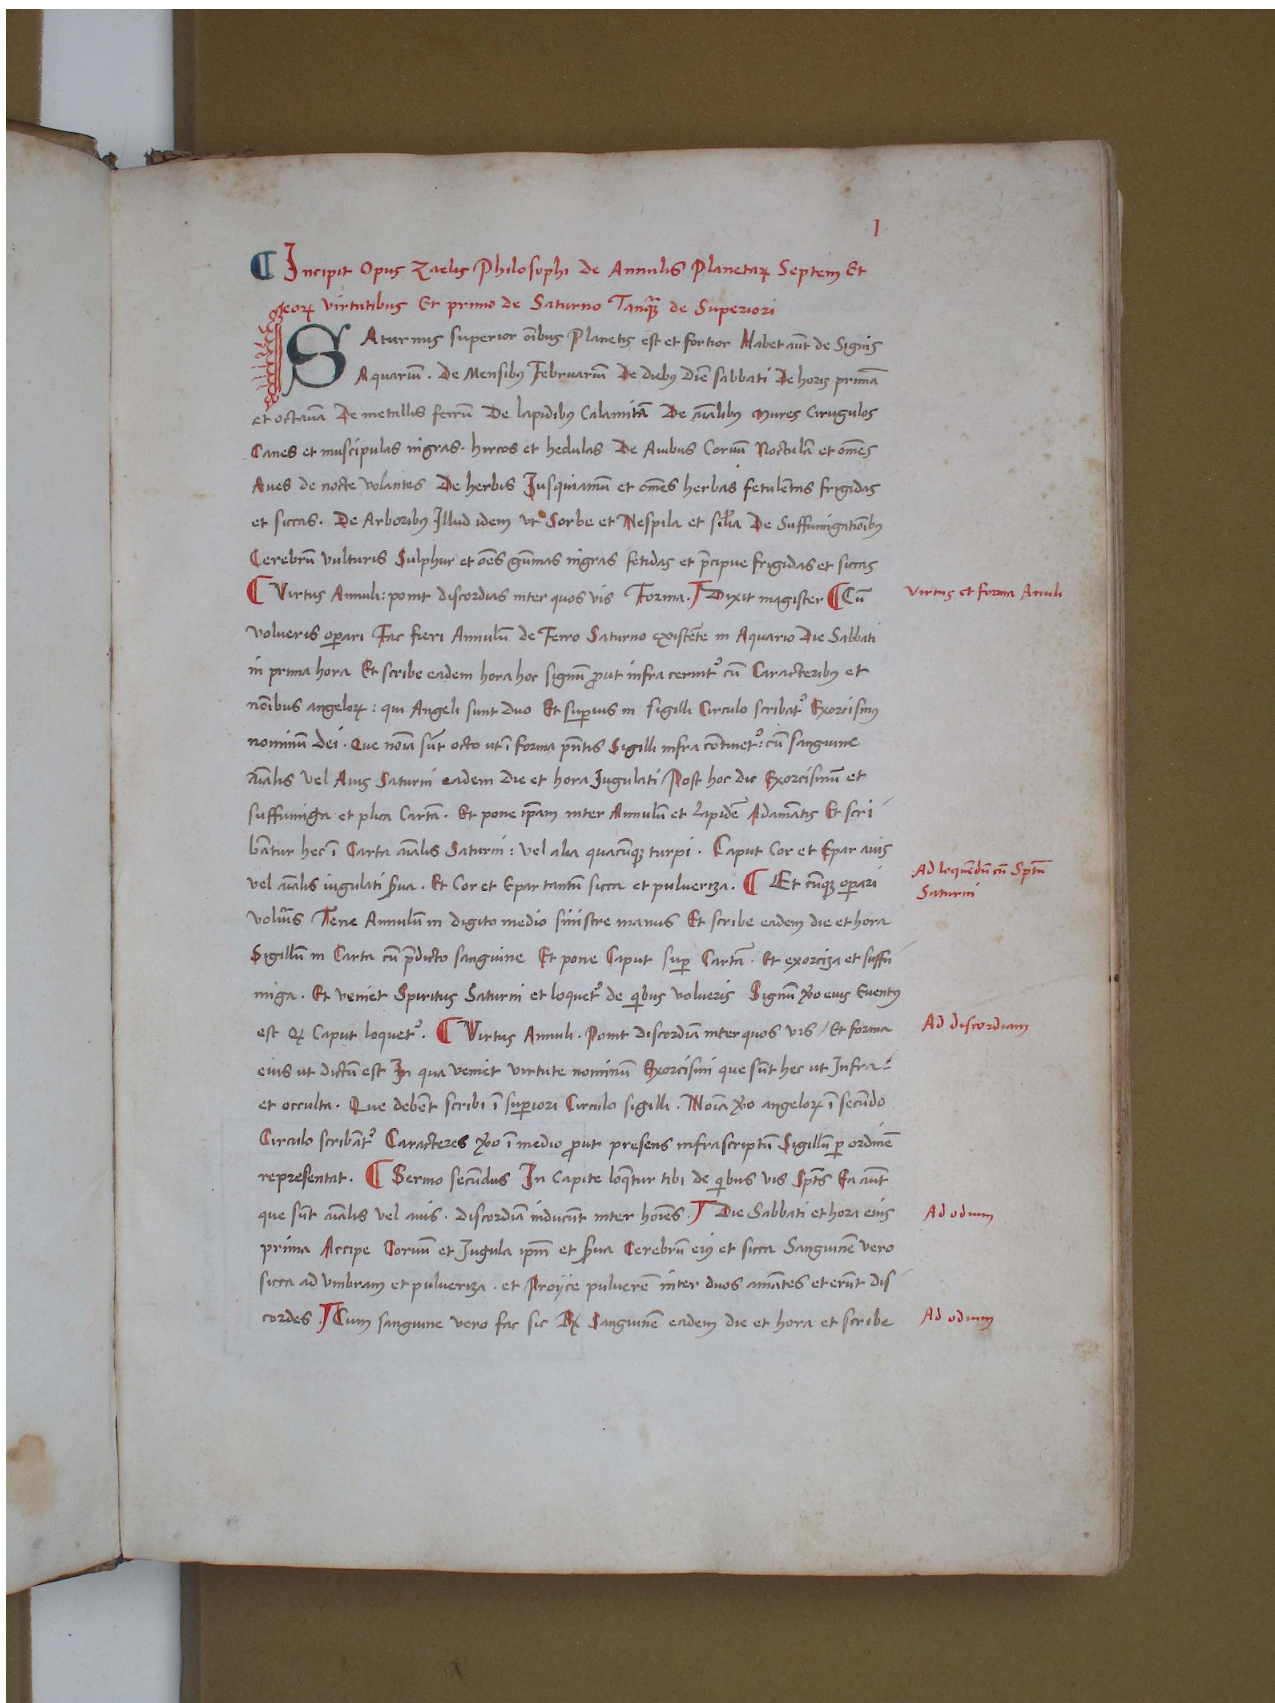 I
Incipit Opus Zaelis Philosophi de Annulis Planetaꝝ Septem Et
eoꝝ virtutibus Et primo de Saturno Tanꝗ̃ de Superiori
SAturnus superior oĩbus Planetis est et fortior Habet aũt de Signis
Aquariũ . De Mensibꝰ Februariũ De diebꝰ Diẽ sabbati De horis primã
et octauã De metallis ferrũ De lapidibꝰ Calamitã De aĩalibꝰ Mures Cirugulos
Canes et muscipulas nigras . hircos et hedulas De Auibus Coruũ Noctulã et om̃es
Aues de nocte volantes De herbis Iusquiamũ et om̃es herbas fetulẽtas frigidas
et siccas . De Arboribꝰ Illud idem ut Sorbe et Nespila et sil̃ia De Suffumigatiõibꝰ
Cerebrũ vulturis Sulphur et oẽs gũmas nigras fetidas et p̃cipue frigidas et siccas
¶ Virtus Annuli : ponit discordias inter quos vis Forma . ¶ Dixit magister ¶ Cũ
Virtus et forma Anuli
volueris oꝑari Fac fieri Annulũ de Ferro Saturno existẽte in Aquario Die Sabbati
in prima hora Et scribe eadem hora hoc signũ ꝓut infra cernit᷑ cũ Caracteribꝰ et
nõibus angeloꝝ : qui Angeli sunt duo Et suꝑius in sigilli Circulo scribat᷑ Exorcismꝰ
nominũ dei . Que nõia sũt octo ut ĩ forma pñtis Sigilli infra cõtinet᷑ : cũ sanguine
aĩalis vel Auis Saturni eadem die et hora Iugulati / Post hoc dic Exorcismũ et
suffumiga et plica Cartã . Et pone ip̃am inter Annulũ et lapidẽ Adamãtis Et scri
bãtur hec ĩ Carta aĩalis Saturni : vel alia quacũqꝫ turpi . Caput Cor et Epar auis
vel aĩalis iugulati s̃ua . Et Cor et Epar tantũ sicca et pulueriza . ¶ Et cũqꝫ oꝑari
Ad loquẽdũ cũ Sp̃tũ
Saturni
voluĩs Tene Annulũ in digito medio sinistre manus Et scribe eadem die et hora
Sigillũ in Carta cũ p̃dicto sanguine Et pone Caput suꝑ Cartã . Et exorciza et suffu
miga . Et veniet Spiritus Saturni et loquet᷑ de q̃ibus volueris Signũ ṽo eius Euentꝰ
est ꝙ Caput loquet᷑ . ¶ Virtus Annuli . Ponit discordiã inter quos vis / Et forma
Ad discordiam
eius ut dictũ est In qua veniet virtute nominũ Exorcismi que sũt hec ut Infra :
et occulta . Que debẽt scribi ĩ suꝑiori Circulo sigilli . Nõia ṽo angeloꝝ ĩ secũdo
Circulo scribãt᷑ Caracteres ṽo ĩ medio ꝓut presens infrascriptũ Sigillũ ꝑ ordinẽ
representat . ¶ Sermo secũdus In Capite loq̃tur tibi de q̃ibus vis Sp̃ts Ea aũt
que sũt aĩalis vel auis . discordiã inducũt inter hoĩes . ¶ Die Sabbati et hora eius
Ad odium
prima Accipe Coruũ et Iugula ip̃m et s̃ua Cerebrũ eiꝰ et sicca Sanguinẽ vero
sicca ad Vmbram et pulueriza . et Proijce puluerẽ inter duos amãtes et erũt dis
cordes . ¶ Cum sanguine vero fac sic ℞ Sanguinẽ eadem die et hora et scribe
Ad odium